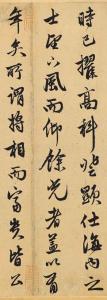 時已擢高科登顯仕海内之
士聞下風而仰餘光者蓋以有
年矣所謂將相而富貴皆公